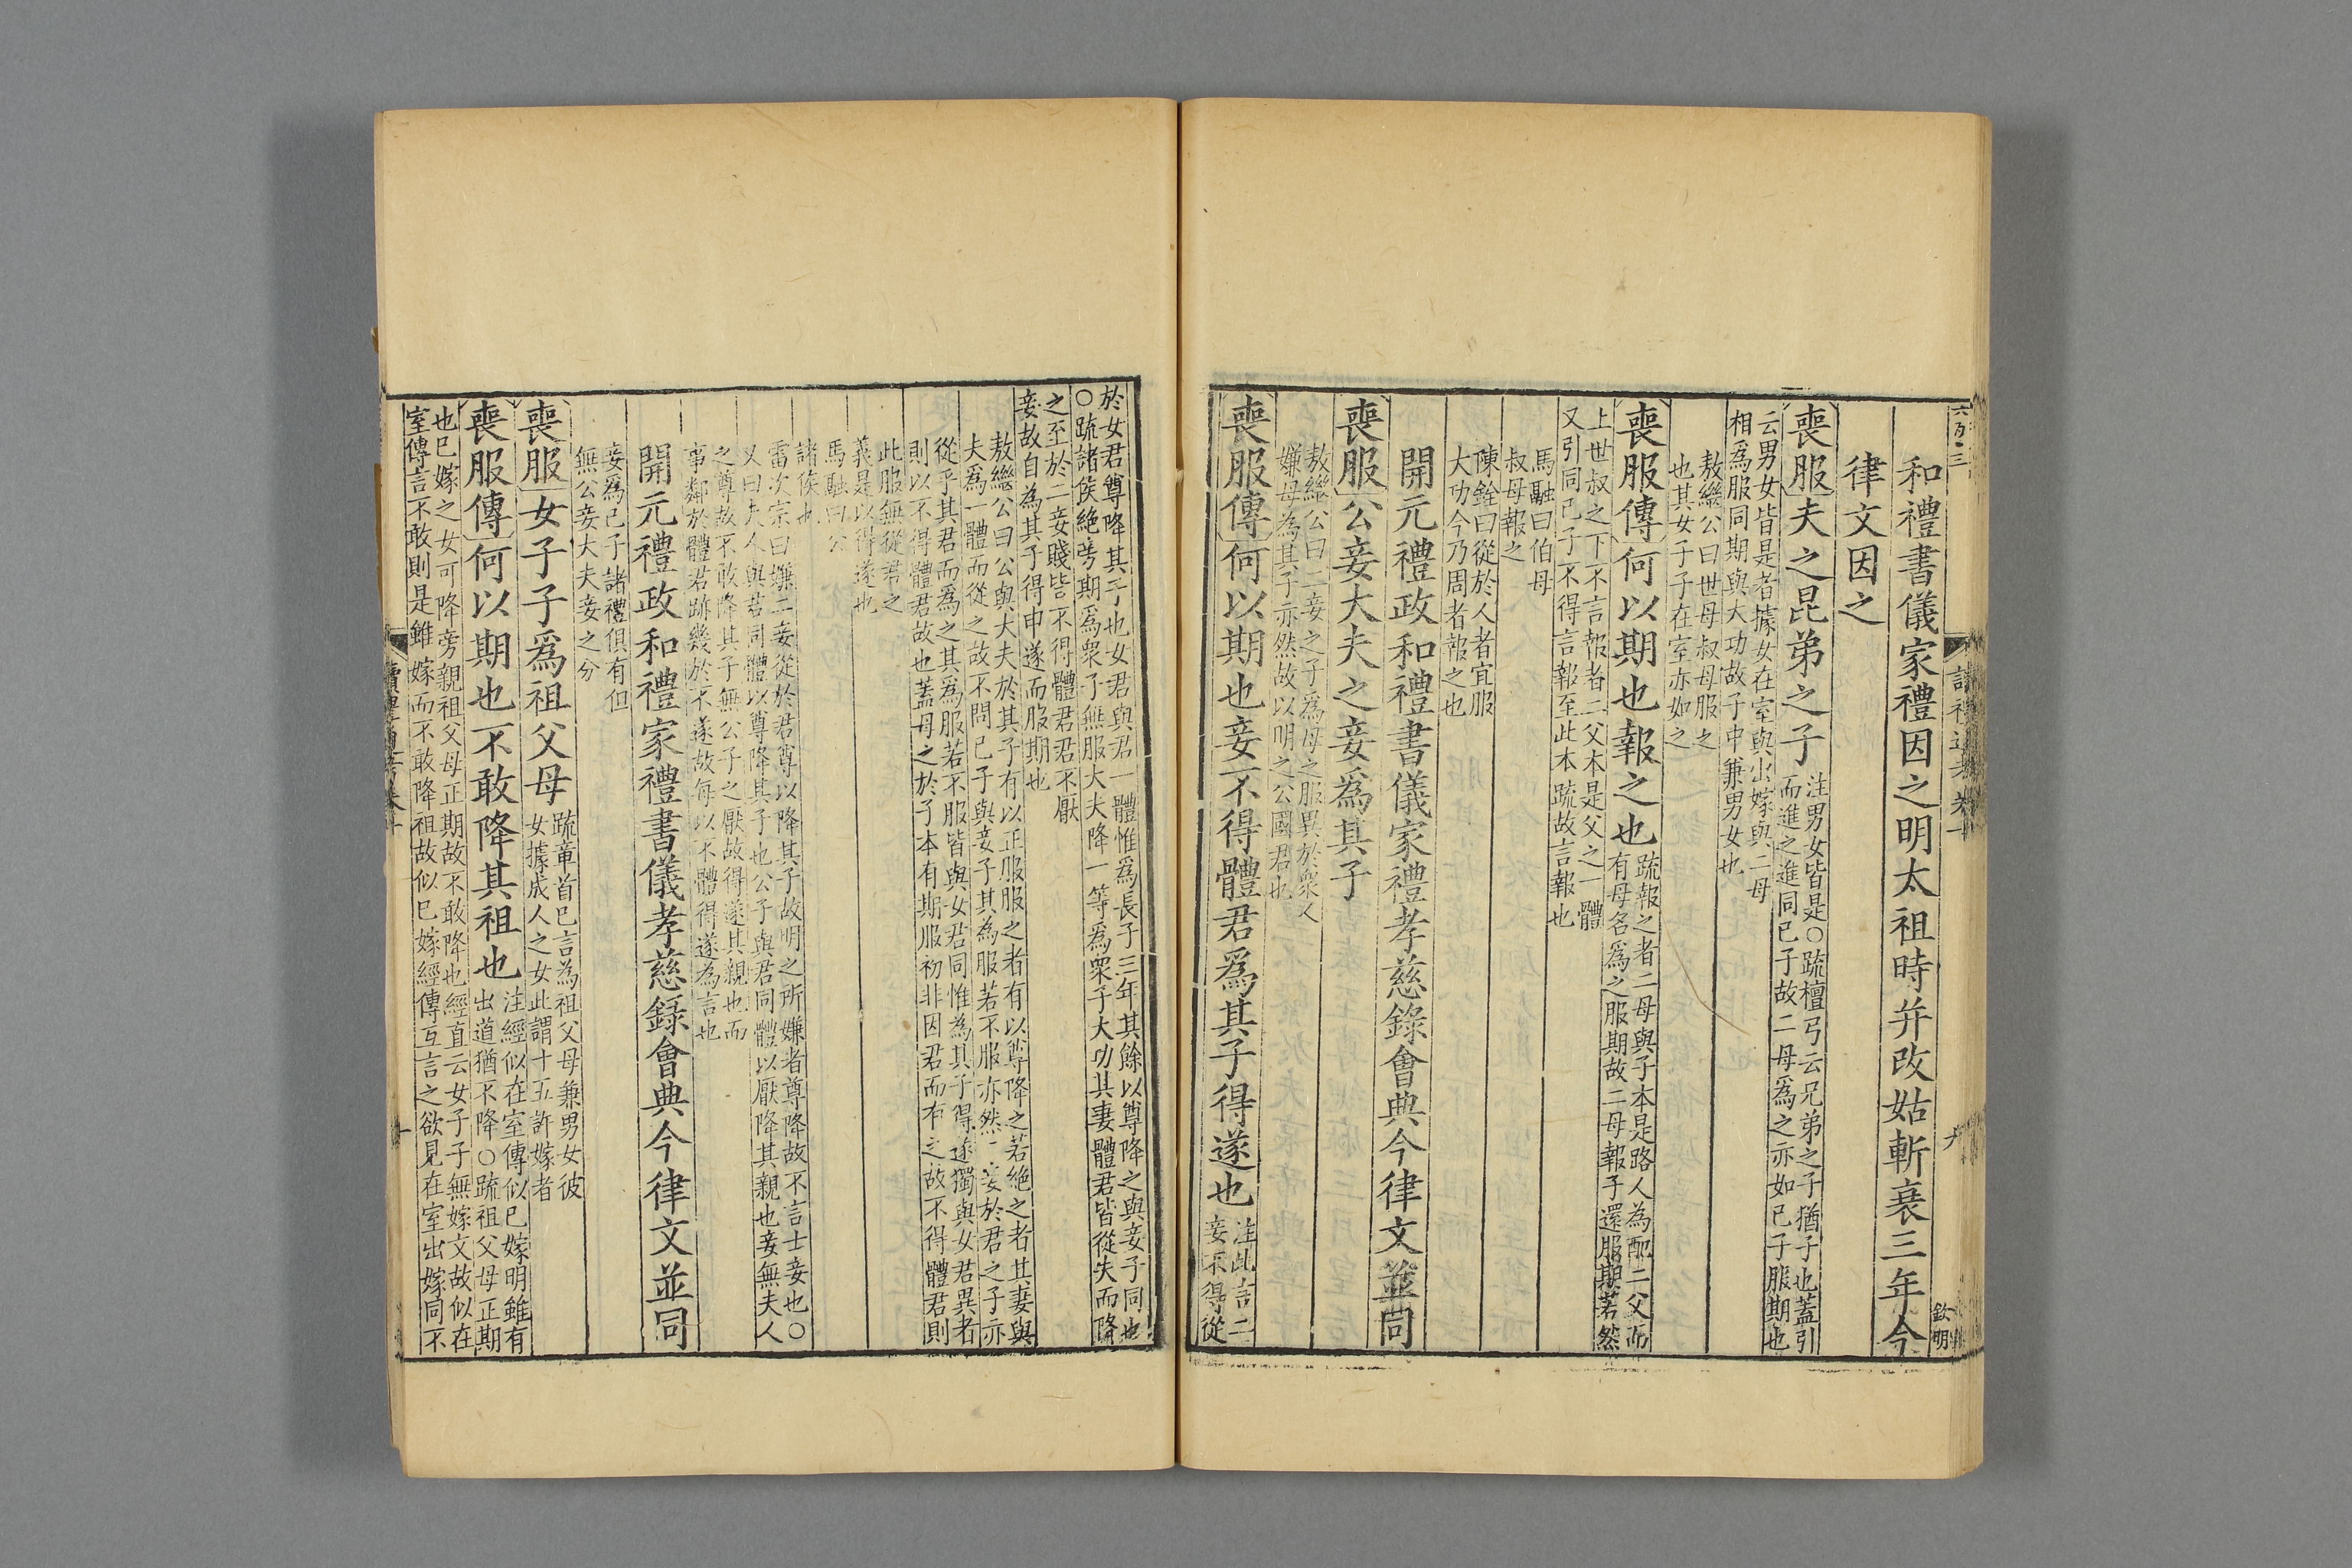 和禮書儀家禮因之明太祖時并改姑斬衰三年今
律文因之
喪服夫之昆弟之子
注男女皆是○疏檀弓云兄弟之子猶子也蓋引
而進之進同己子故二母爲之亦如己子服期也
云男女皆是者據女在室與出嫁與二母
相爲服同期與大功故子中兼男女也
敖繼公曰世母叔母服之
也其女子子在室亦如之
喪服傳何以期也報之也
疏報之者二母與子本是路人為配二父而
有母名爲之服期故二母報子還服期若然
上世叔之下不言報者二父本是父之一體
又引同己子不得言報至此本疏故言報也
馬融曰伯母
叔母報之
陳銓曰從於人者宜服
大功今乃周者報之也
開元禮政和禮書儀家禮孝慈錄會典今律文並同
喪服公妾大夫之妾爲其子
敖繼公曰二妾之子爲母之服異於衆人
嫌母為其子亦然故以明之公國君也
喪服傳何以期也妾不得體君爲其子得遂也
注此言二
妾不得從
於女君尊降其子也女君與君一體惟爲長子三年其餘以尊降之與妾子同也
○疏諸侯絶旁期爲衆子無服大夫降一等爲衆子大功其妻體君皆從夫而降
之至於二妾賤皆不得體君君不厭
妾故自為其子得申遂而服期也
敖繼公曰公與大夫於其子有以正服服之者有以尊降之若絶之者其妻與
夫爲一體而從之故不問己子與妾子其為服若不服亦然二妾於君之子亦
從乎其君而爲之其爲服若不服皆與女君同惟為其子得遂獨與女君異者
則以不得體君故也蓋母之於子本有期服初非因君而有之故不得體君則
此服無從君之
義是以得遂也
馬融曰公
諸侯也
雷次宗曰嫌二妾從於君尊以降其子故明之所嫌者尊降故不言士妾也○
又曰夫人與君同體以尊降其子也公子與君同體以厭降其親也妾無夫人
之尊故不敢降其子無公子之厭故得遂其親也而
事鄰於體君跡幾於不遂故每以不體得遂為言也
開元禮政和禮家禮書儀孝慈錄會典今律文並同
妾爲己子諸禮俱有但
無公妾大夫妾之分
喪服女子子爲祖父母
疏章首已言為祖父母兼男女彼
女據成人之女此謂十五許嫁者
喪服傳何以期也不敢降其祖也
注經似在室傳似已嫁明雖有
出道猶不降○疏祖父母正期
也已嫁之女可降旁親祖父母正期故不敢降也經直云女子子無嫁文故似在
室傳言不敢則是雖嫁而不敢降祖故似已嫁經傳互言之欲見在室出嫁同不